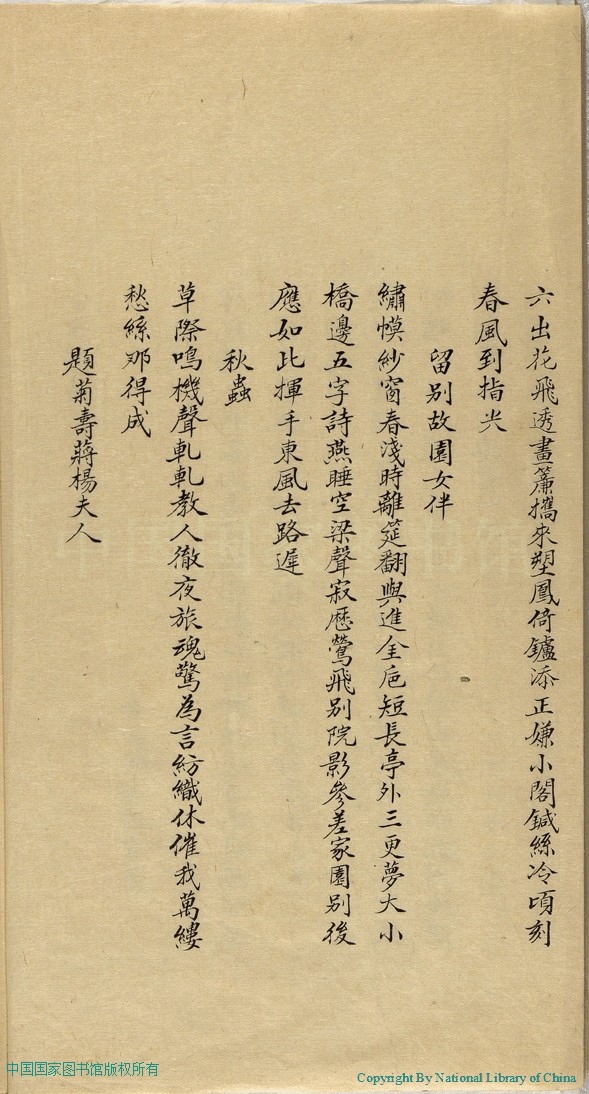 六出花飛透畫簾攜來塑鳳倚鑪添正嫌小閣鍼絲冷頃刻
春風到指尖
留別故園女伴
繡幙紗窗春淺時離筵翻與進金卮短長亭外三更夢大小
橋邊五字詩燕睡空梁聲寂歷鶯飛別院影參差家園別後
應如此揮手東風去路遲
秋蟲
草際鳴機聲軋軋教人徹夜旅魂驚為言紡織休催我萬縷
愁絲那得成
題菊壽蔣楊夫人
中国国家图书馆版权所有
Copyright By National Library of China